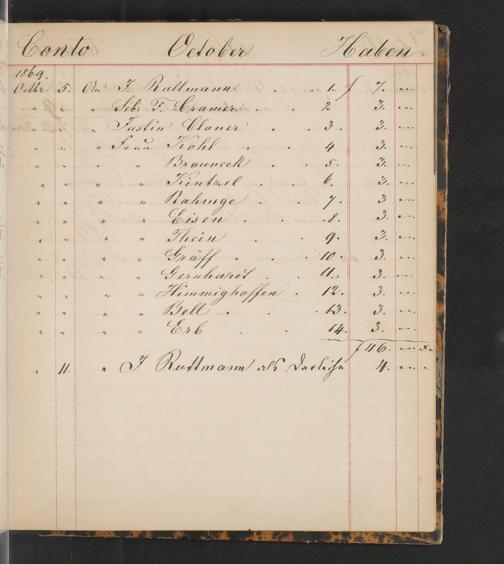 Conto October Haben
1869.
Octbr 5. An J. Ruttmann . . 1. f 7. "
" " " Seb. F. Cramer . . 2 3. "
" " " Justin Claner . . 3. 3. "
" " " Frau Kohl . . 4 3. "
" " " " Brauneck . . 5. 3. "
" " " " Kintzel . . 6. 3. "
" " " " Rahmge . . 7. 3 "
" " " " Eisen . . 8. 3. "
" " " " Thein . . 9. 3. "
" " " " Gräff . . 10. 3. "
" " " " Gernhardt . . 11. 3. "
" " " " Himmighoffen . 12. 3. "
" " " " Bell . . 13. 3. "
" " " " Erb . . 14. 3. "
f 46. "
" 11. " J Ruttmann als Darlehn 4. " "